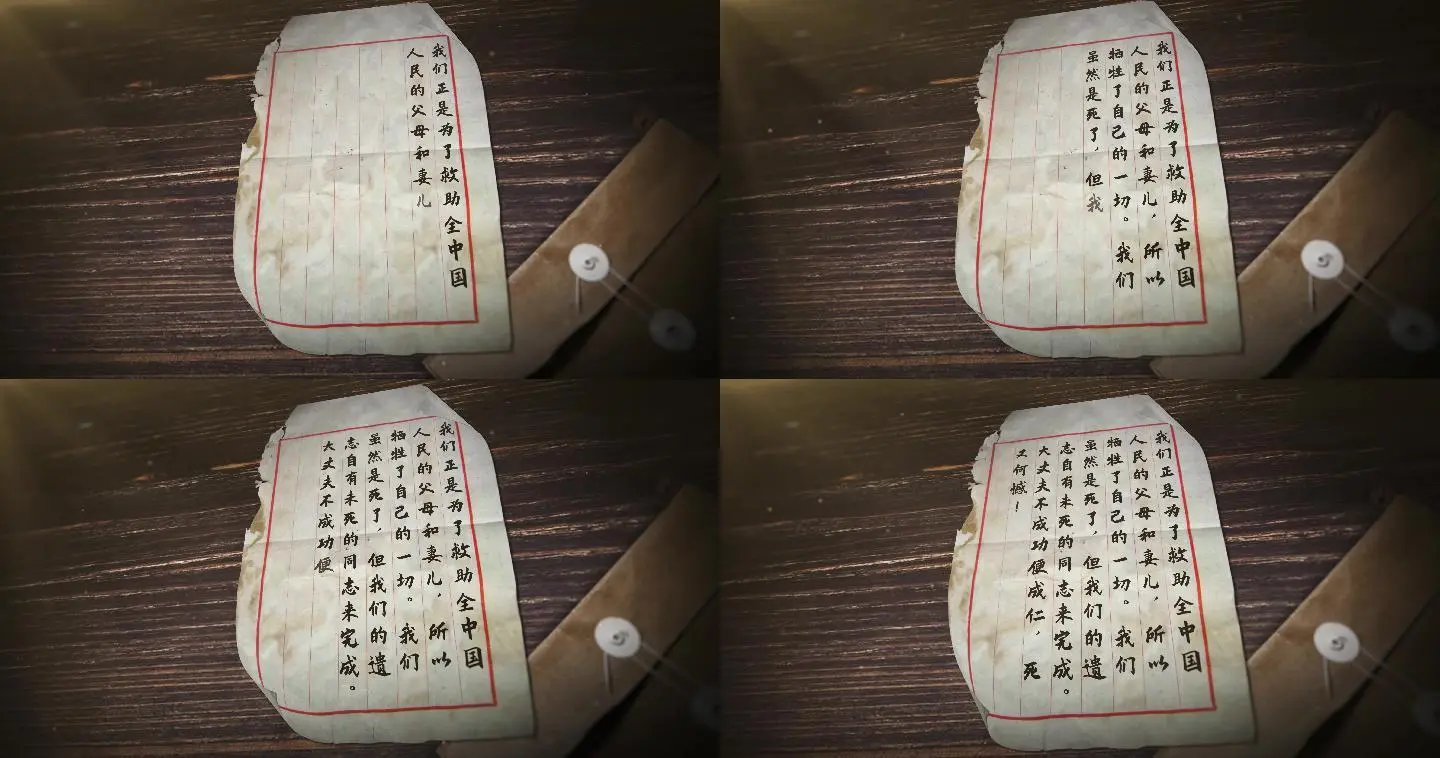 我们正是为了救助全中国
人民的父母和妻儿
我们正是为了救助全中国
人民的父母和妻儿，所以
牺牲了自己的一切。我们
虽然是死了，但我
我们正是为了救助全中国
人民的父母和妻儿，所以
牺牲了自己的一切。我们
虽然是死了，但我们的遗
志自有未死的同志来完成。
大丈夫不成功便
我们正是为了救助全中国
人民的父母和妻儿，所以
牺牲了自己的一切。我们
虽然是死了，但我们的遗
志自有未死的同志来完成。
大丈夫不成功便成仁，死
又何憾！